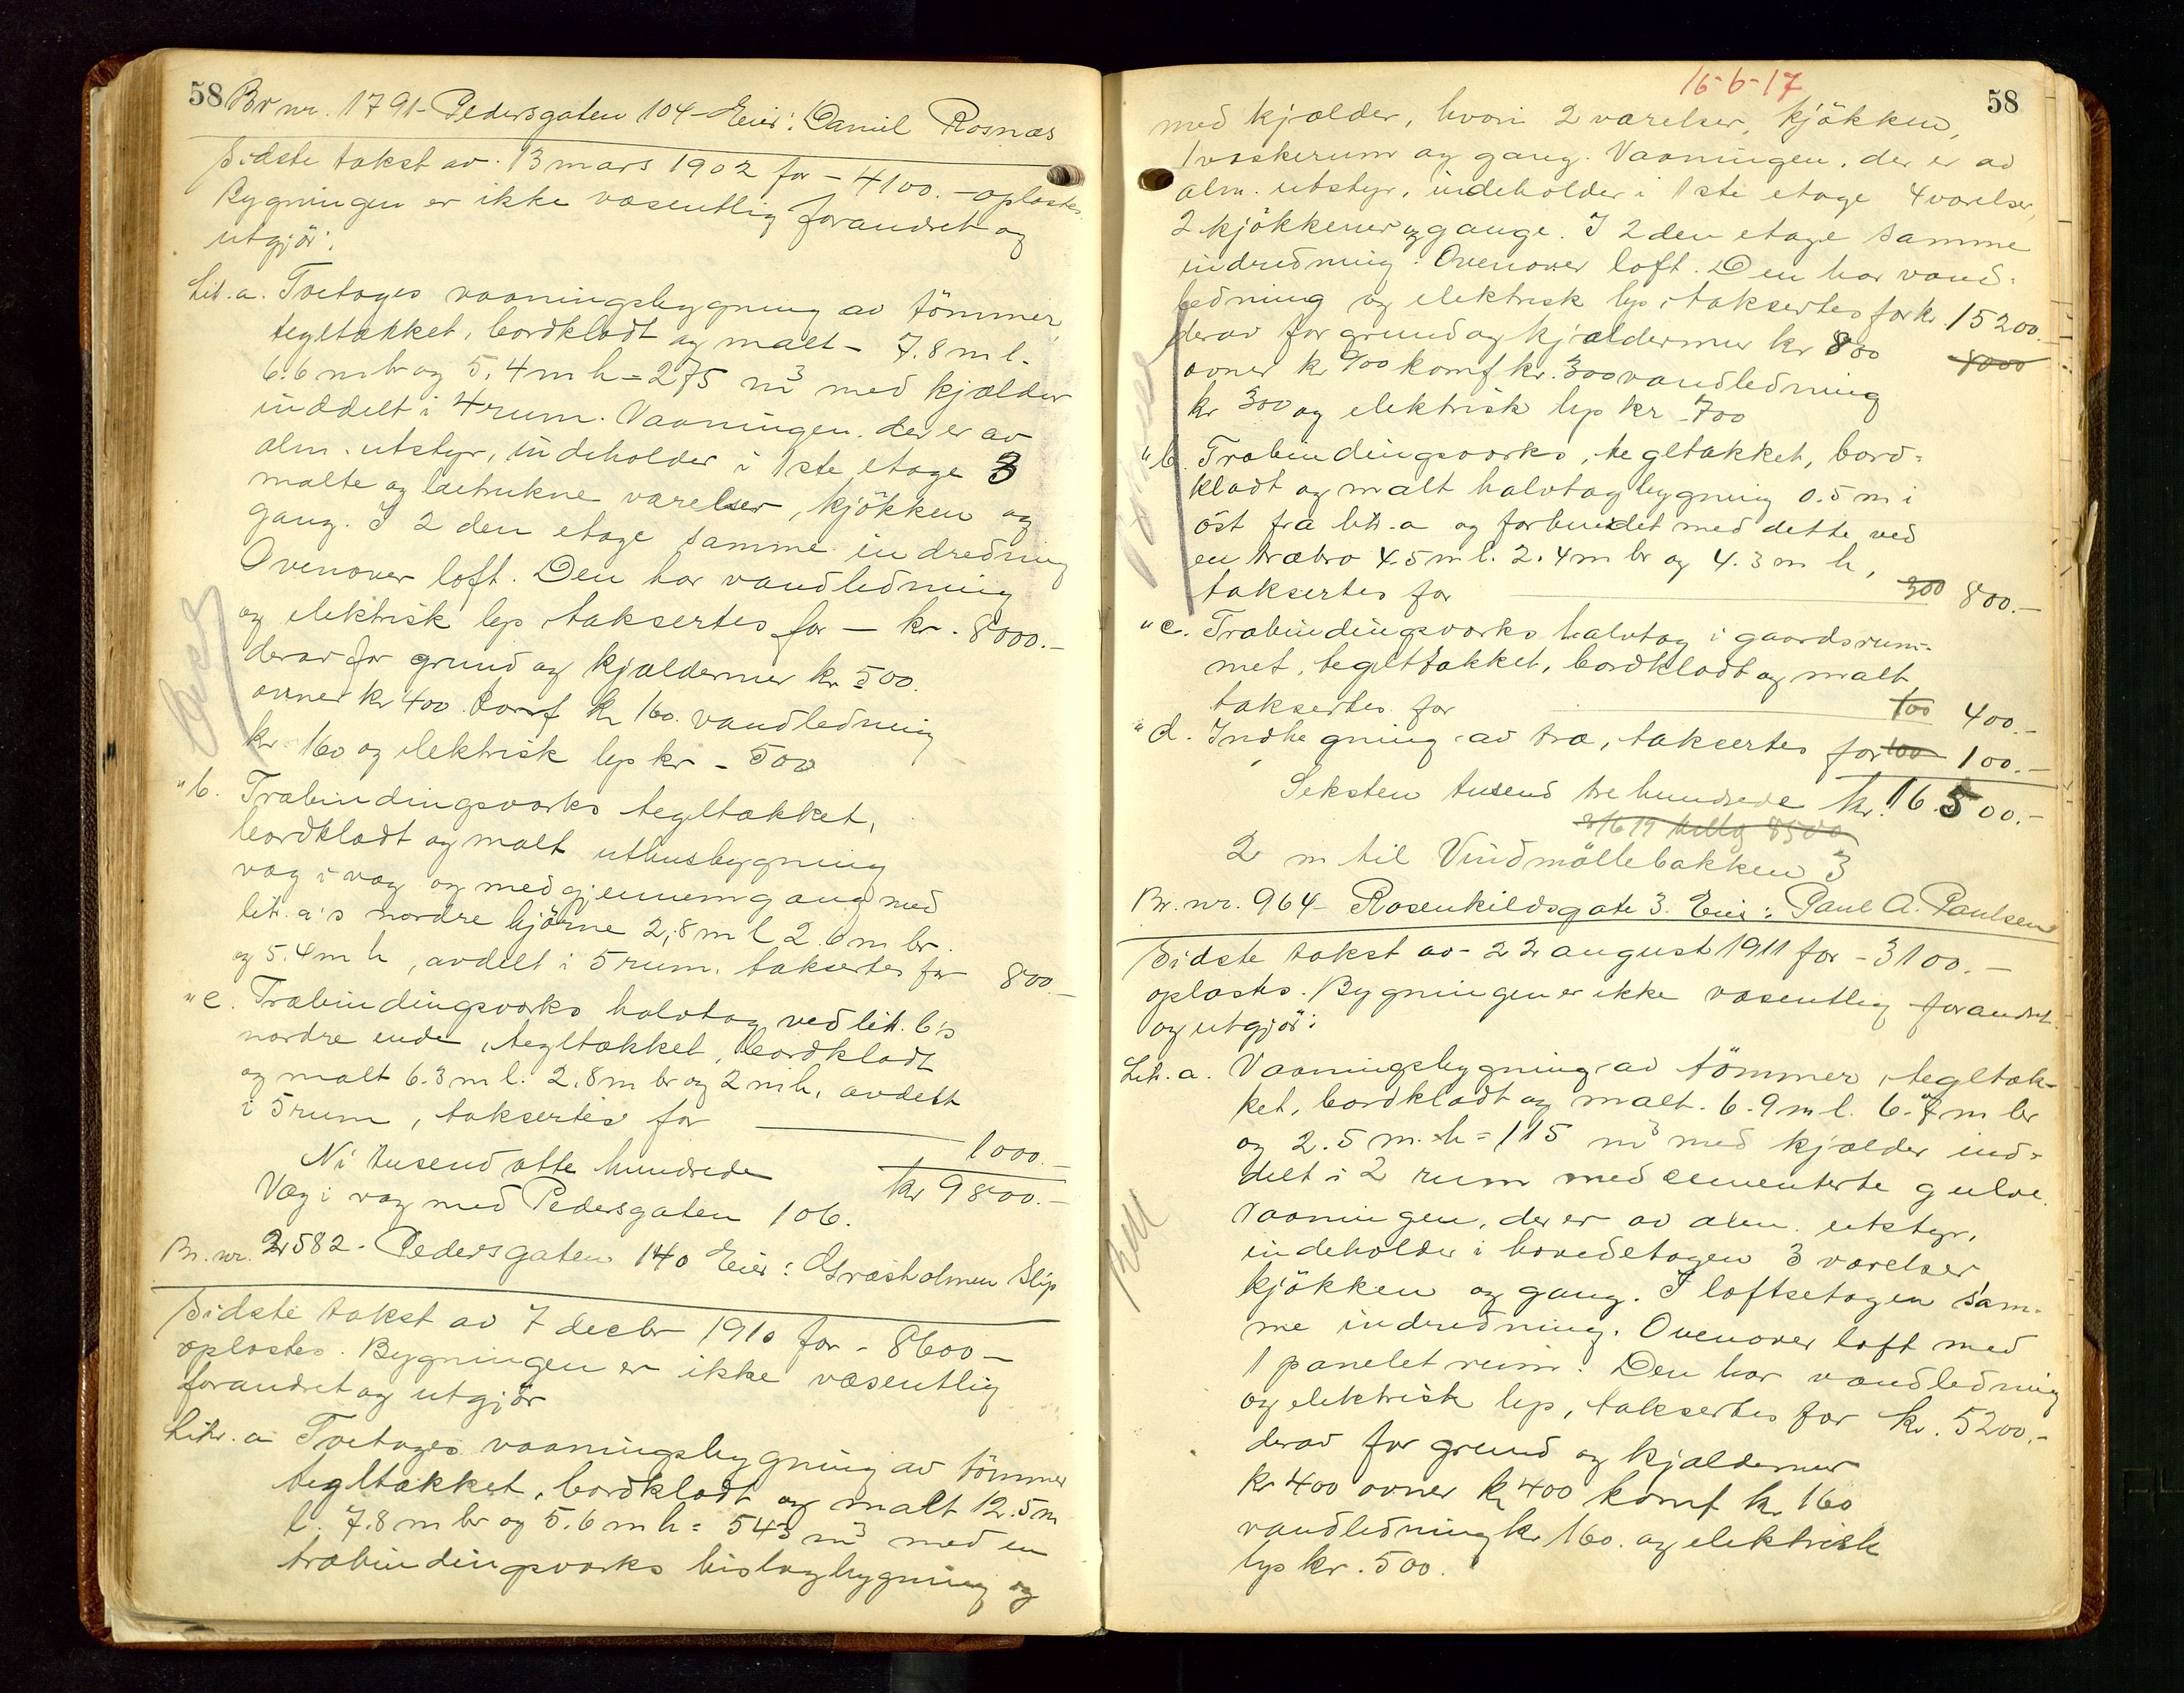 58 Br nr. 1791 - Pedersgaten 104 - Eier: Daniel Rosnæs
Sidste takst av 13 mars 1902 for - 4100.- oplæstes.
Bygningen er ikke væsentlig forandret og
utgjör:
Lit. a. Toetages vaaningsbygning av tömmer,
tegltækket, bordklædt og malt - 7.8 m l.
6.6 m br og 5.4 m h = 275 m3 med kjælder
inddelt i 4 rum. Vaaningen, der er av
alm. utstyr, indeholder i 1ste etage 3
malte og betrukne værelser, kjökken og
gang. I 2den etage samme indredning
Ovenover loft. Den har vandledning
og elektrisk lys taksertes for - kr. 8000.-
derav for grund og kjældermur kr 500.
ovner kr 400 komf kr 160. vandledning
kr 160 og elektrisk lys kr - 500
" b. Træbindingsværks tegltækket,
bordklædt og malt uthusbygning
væg i væg og med gjennemgang med
litr. a's nordre hjörne 2,8 m l 2.6 m br.
og 5.4 m h, avdelt i 5 rum, taksertes for 800.-
" c. Træbindingsværks halvtag ved litr. b's
nordre ende, tegltækket, bordklædt
og malt 6.3 m l. 2.8 m br og 2 m h, avdelt
i 5 rum, taksertes for 1000.-
Ni tusend otte hundrede kr 9800.-
Væg i væg med Pedersgaten 106.
Br. nr. 2582 - Pedersgaten 140 Eier: Græsholmen Slip
Sidste takst av 7 decbr 1910 for - 8600 -
oplæstes. Bygningen er ikke væsentlig
forandret og utgjör
Litr. a Toetages vaaningsbygning av tömmer
tegltækket, bordklædt og malt 12.5 m
l. 7.8 m br og 5.6 m h = 543 m3 med en
træbindingsværks bislagbygning og
16-6-17
58
med kjælder, hvori 2 værelser, kjökken,
1 vaskerum og gang. Vaaningen, der er av
alm. utstyr, indeholder i 1ste etage 4 værelser,
2 kjökkener og gange. I 2den etage samme
indredning. Ovenover loft. Den har vand-
ledning og elektrisk lys, taksertes for kr. 15200.
derav for grund og kjældermur kr 800 8000
ovner kr 900 komf kr. 300 vandledning
kr 300 og elektrisk lys kr - 700
" b. Træbindingsværks, tegltækket, bord-
klædt og malt halvtagbygning 0.5 m i
öst fra litr. a og forbundet med dette ved
en træbro 4.5 m l. 2.4 m br og 4.3 m h,
taksertes for 300 800.-
" c. Træbindingsværks halvtag i gaardsrum-
met, tegltækket, bordklædt og malt
taksertes for 100 400.-
" d. Indhegning av træ, taksertes for 100 100.-
Seksten tusend tre hundrede kr. 16.500.-
8500
2 m til Vindmöllebakken 3
Br. nr. 964 - Rosenkildsgate 3. Eier: Paul A. Paulsen
Sidste takst av - 22 august 1911 for - 3100.-
oplæstes. Bygningen er ikke væsentlig forandret
og utgjör:
Litr. a. Vaaningsbygning av tömmer, tegltæk-
ket, bordklædt og malt. 6.9 m l. 6.7 m br
og 2.5 m. h = 115 m3 med kjælder ind-
delt i 2 rum med cementerte gulve.
Vaaningen, der er av alm. utstyr,
indeholder i hovedetagen 3 værelser,
kjökken og gang. I loftsetagen sam-
me indredning. Ovenover loft med
1 panelet rum. Den har vandledning
og elektrisk lys, taksertes for kr. 5200.-
derav for grund og kjældermur
kr 400 ovner kr 400 komf kr 160
vandledning kr 160. og elektrisk
lys kr. 500.